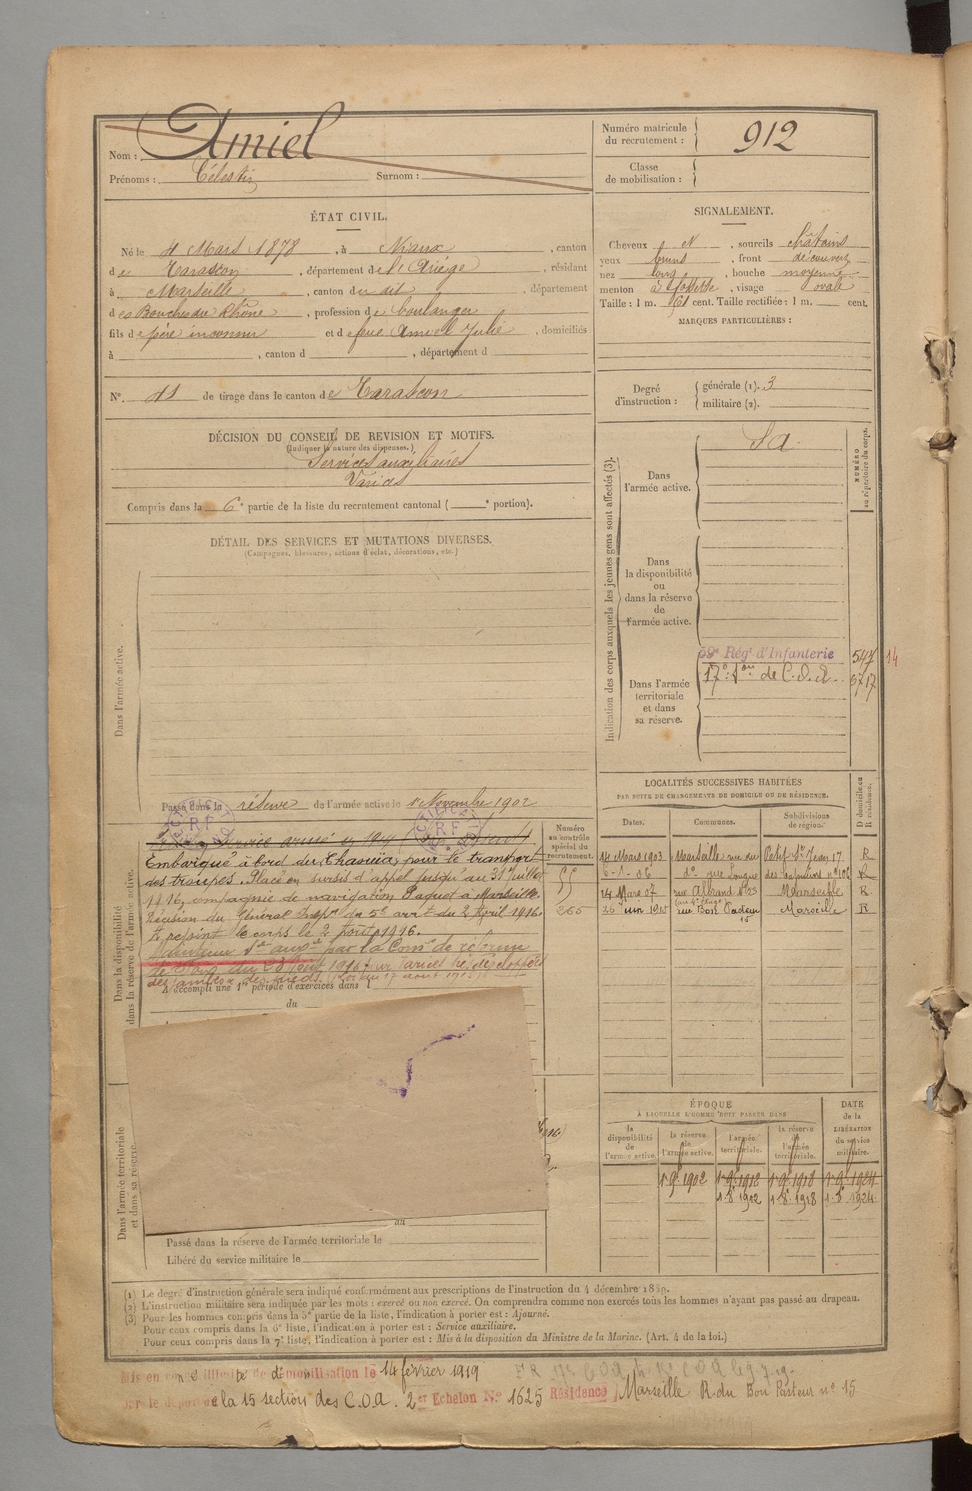 Nom : Amiel
Prénoms : Célestin Surnom :
Numéro matricule du recrutement : 912
Classe de mobilisation :
ÉTAT CIVIL.
Né le 4 Mars 1878, à Niaux, canton
de Tarascon, département de l'Ariège, résidant
à Marseille, canton du dit, département
des Bouches du Rhône, profession de boulanger
fils de père inconnu et de feue Amiel Julie, domiciliés
à , canton d , département d
N° 41 de tirage dans le canton de Tarascon
SIGNALEMENT.
Cheveux N, sourcils châtains
yeux bruns, front découvert
nez long, bouche moyenne
menton à fossette, visage ovale
Taille : 1 m. 61 cent. Taille rectifiée : 1 m. cent.
MARQUES PARTICULIÈRES :
Degré d'instruction : générale (1). 3
militaire (2).
DÉCISION DU CONSEIL DE REVISION ET MOTIFS.
(Indiquer la nature des dispenses.)
Services auxiliaires
Varices
Compris dans la 6e partie de la liste du recrutement cantonal ( e portion).
DÉTAIL DES SERVICES ET MUTATIONS DIVERSES.
(Campagnes, blessures, actions d'éclat, décorations, etc.)
Dans l'armée active.
Indication des corps auxquels les jeunes gens sont affectés (3).
NUMÉRO au répertoire du corps.
Dans l'armée active.
S a.
Dans la disponibilité ou dans la réserve de l'armée active.
Dans l'armée territoriale et dans sa réserve.
59e Régt d'Infanterie 547 14
17e son de C.O.A.
Passé dans la réserve de l'armée active le 1er Novembre 1902
Numéro au contrôle spécial du recrutement.
Embarqué à bord du Chaouïa, pour le transport
des troupes. Placé en sursis d'appel jusqu'au 31 Juillet
1916, compagnie de navigation Paquet à Marseille.
Décision du Général Insp. du 5e arrt du 2 April 1916.
A rejoint le corps le 2 août 1916.
Maintenu Sce auxre par la Comon de réforme
A accompli une 1re période d'exercices dans l
du
Dans la disponibilité et dans la réserve de l'armée active.
LOCALITÉS SUCCESSIVES HABITÉES
PAR SUITE DE CHANGEMENTS DE DOMICILE OU DE RÉSIDENCE.
Dates. Communes. Subdivisions de région. D domicile ou R résidence.
14 Mars 1903 Marseille rue du Petit St Jean 17 R
6-1-06 do rue Longue des Capucins no 106 R
24 Mars 07 rue Albrand no 23 Marseille R
265
rue Bon Pasteur 15 Marseille R
ÉPOQUE
À LAQUELLE L'HOMME DOIT PASSER DANS
la disponibilité de l'armée active. la réserve de l'armée active. l'armée territoriale. la réserve de l'armée territoriale.
DATE de la LIBÉRATION du service militaire.
1er 9bre 1902 1er 9bre 1912 1er 9bre 1918 1er 9bre 1924
1.8.1902 1.8.1918 1.8.1924
Dans l'armée territoriale et dans sa réserve.
au
Passé dans la réserve de l'armée territoriale le
Libéré du service militaire le
(1) Le degré d'instruction générale sera indiqué conformément aux prescriptions de l'instruction du 4 décembre 1889.
(2) L'instruction militaire sera indiquée par les mots : exercé ou non exercé. On comprendra comme non exercés tous les hommes n'ayant pas passé au drapeau.
(3) Pour les hommes compris dans la 5e partie de la liste, l'indication à porter est : Ajourné.
Pour ceux compris dans la 6e liste, l'indication à porter est : Service auxiliaire.
Pour ceux compris dans la 7e liste, l'indication à porter est : Mis à la disposition du Ministre de la Marine. (Art. 4 de la loi.)
Mis en congé illimité de démobilisation le 14 février 1919
par le dépôt de la 15 section des C.O.A. 2er Echelon No 1625 Résidence Marseille R. du Bon Pasteur no 15